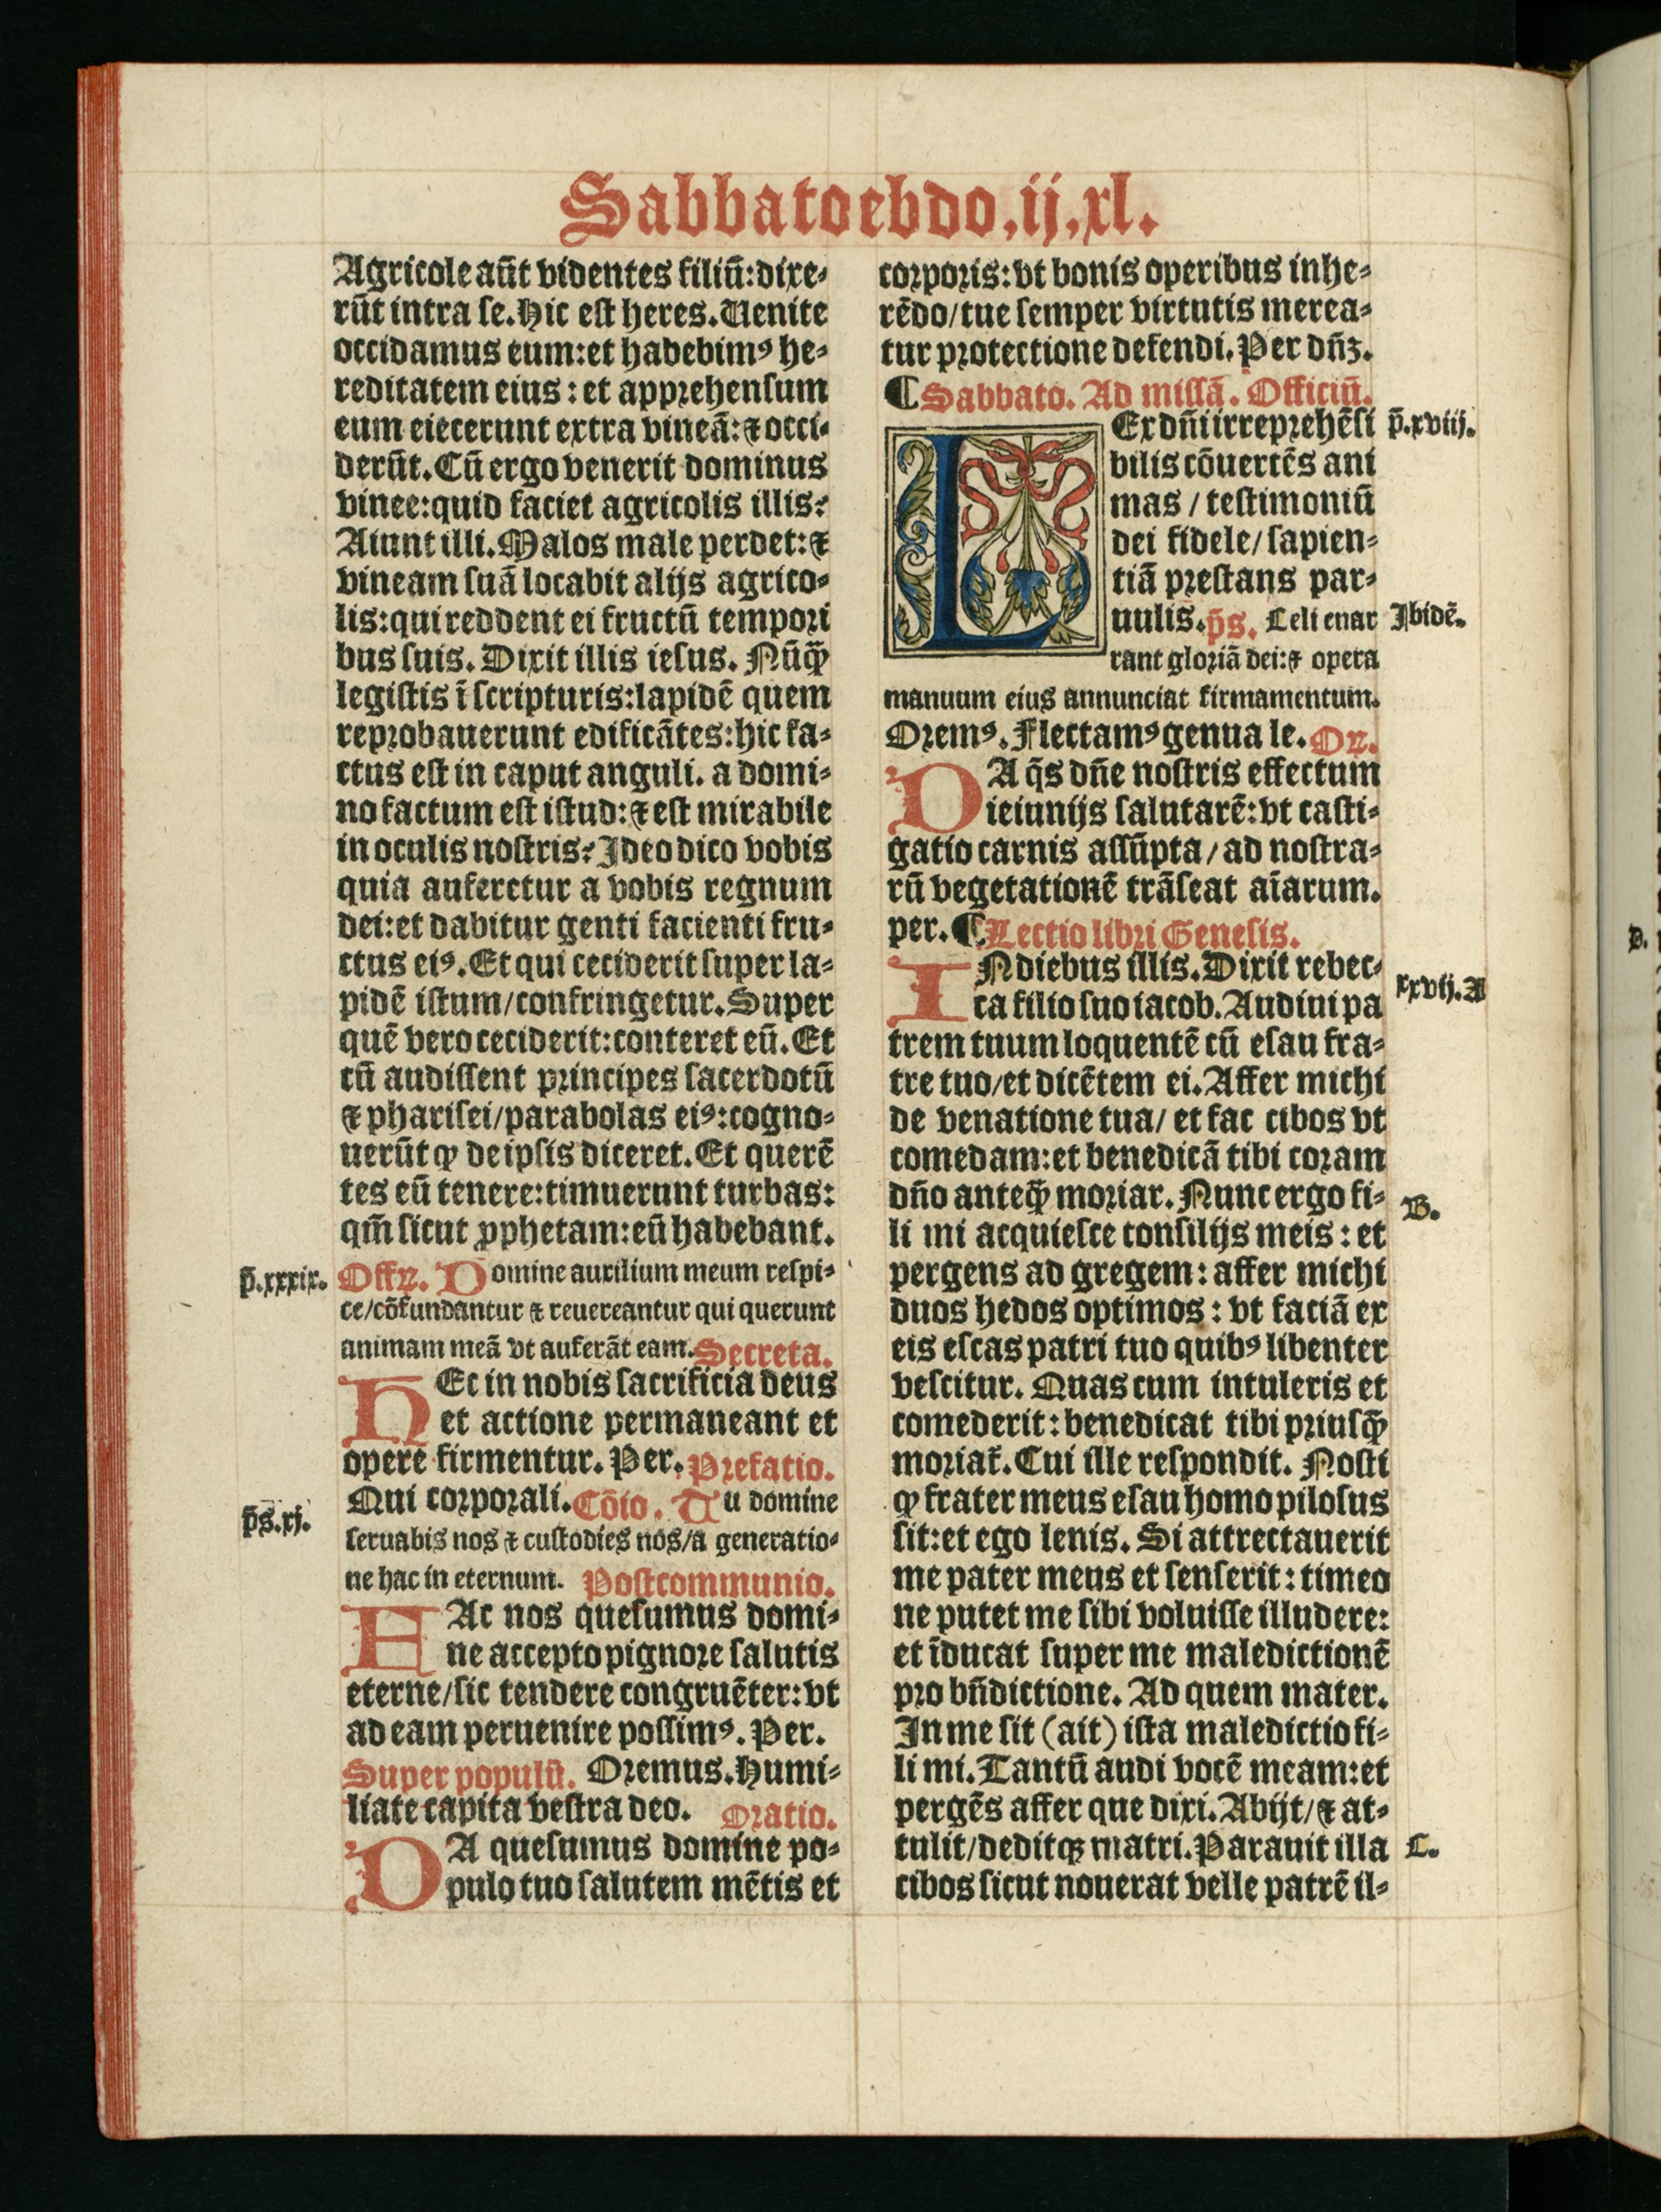 Sabbato ebdo.ij.xl.
Agricole aūt videntes filiū: dixe-
rūt intra se. Hic est heres. Uenite
occidamus eum: et habebimꝰ he-
reditatem eius: et apprehensum
eum eiecerunt extra vineā: ⁊ occi-
derūt. Cū ergo venerit dominus
vinee: quid faciet agricolis illis?
Aiunt illi. Malos male perdet: ⁊
vineam suā locabit alijs agrico-
lis: qui reddent ei fructū tempori
bus suis. Dixit illis iesus. Nūꝙ̄
legistis ī scripturis: lapidē quem
reprobauerunt edificātes: hic fa-
ctus est in caput anguli. a domi-
no factum est istud: ⁊ est mirabile
in oculis nostris? Ideo dico vobis
quia auferetur a vobis regnum
dei: et dabitur genti facienti fru-
ctus eiꝰ. Et qui ceciderit super la-
pidē istum/confringetur. Super
quē vero ceciderit: conteret eū. Et
cū audissent principes sacerdotū
⁊ pharisei/parabolas eiꝰ: cogno-
uerūt ꝙ de ipsis diceret. Et querē
tes eū tenere: timuerunt turbas:
qm̄ sicut ꝓphetam: eū habebant.
p̄.xxxix. Offꝝ. Domine auxilium meum respi-
ce/cōfundantur ⁊ reuereantur qui querunt
animam meā vt auferāt eam. Secreta.
HEc in nobis sacrificia deus
et actione permaneant et
opere firmentur. Per. Prefatio.
Qui corporali. Cōio. Tu domine
p̄s.xj. seruabis nos ⁊ custodies nos/a generatio-
ne hac in eternum. Postcommunio.
HAc nos quesumus domi-
ne accepto pignore salutis
eterne/sic tendere congruēter: vt
ad eam peruenire possimꝰ. Per.
Super populū. Oremus. Humi-
liate capita vestra deo. Oratio.
DA quesumus domine po-
pulo tuo salutem mētis et
corporis: vt bonis operibus inhe-
rēdo/tue semper virtutis merea-
tur protectione defendi. Per dn̄ʒ.
¶ Sabbato. Ad missā. Officiū.
LEx dn̄i irreprehēsi p̄.xviij.
bilis cōuertēs ani
mas / testimoniū
dei fidele/ sapien-
tiā prestans par-
uulis. p̄s. Celi enar Ibidē.
rant gloriā dei: ⁊ opera
manuum eius annunciat firmamentum.
Oremꝰ. Flectamꝰ genua le. Oꝝ.
DA q̄s dn̄e nostris effectum
ieiunijs salutarē: vt casti-
gatio carnis assūpta/ad nostra-
rū vegetationē trāseat aīarum.
per. ¶ Lectio libri Genesis.
INdiebus illis. Dixit rebec-
ca filio suo iacob. Audiui pa xxvij.A
trem tuum loquentē cū esau fra-
tre tuo/et dicētem ei. Affer michi
de venatione tua/ et fac cibos vt
comedam: et benedicā tibi coram
dn̄o anteꝙ̄ moriar. Nunc ergo fi- B.
li mi acquiesce consilijs meis: et
pergens ad gregem: affer michi
duos hedos optimos: vt faciā ex
eis escas patri tuo quibꝰ libenter
vescitur. Quas cum intuleris et
comederit: benedicat tibi priusꝙ̄
moriat̄. Cui ille respondit. Nosti
ꝙ frater meus esau homo pilosus
sit: et ego lenis. Si attrectauerit
me pater meus et senserit: timeo
ne putet me sibi voluisse illudere:
et īducat super me maledictionē
pro bn̄dictione. Ad quem mater.
In me sit (ait) ista maledictio fi-
li mi. Tantū audi vocē meam: et
pergēs affer que dixi. Abijt/⁊ at-
tulit/deditqꝫ matri. Parauit illa C.
cibos sicut nouerat velle patrē il-
D.